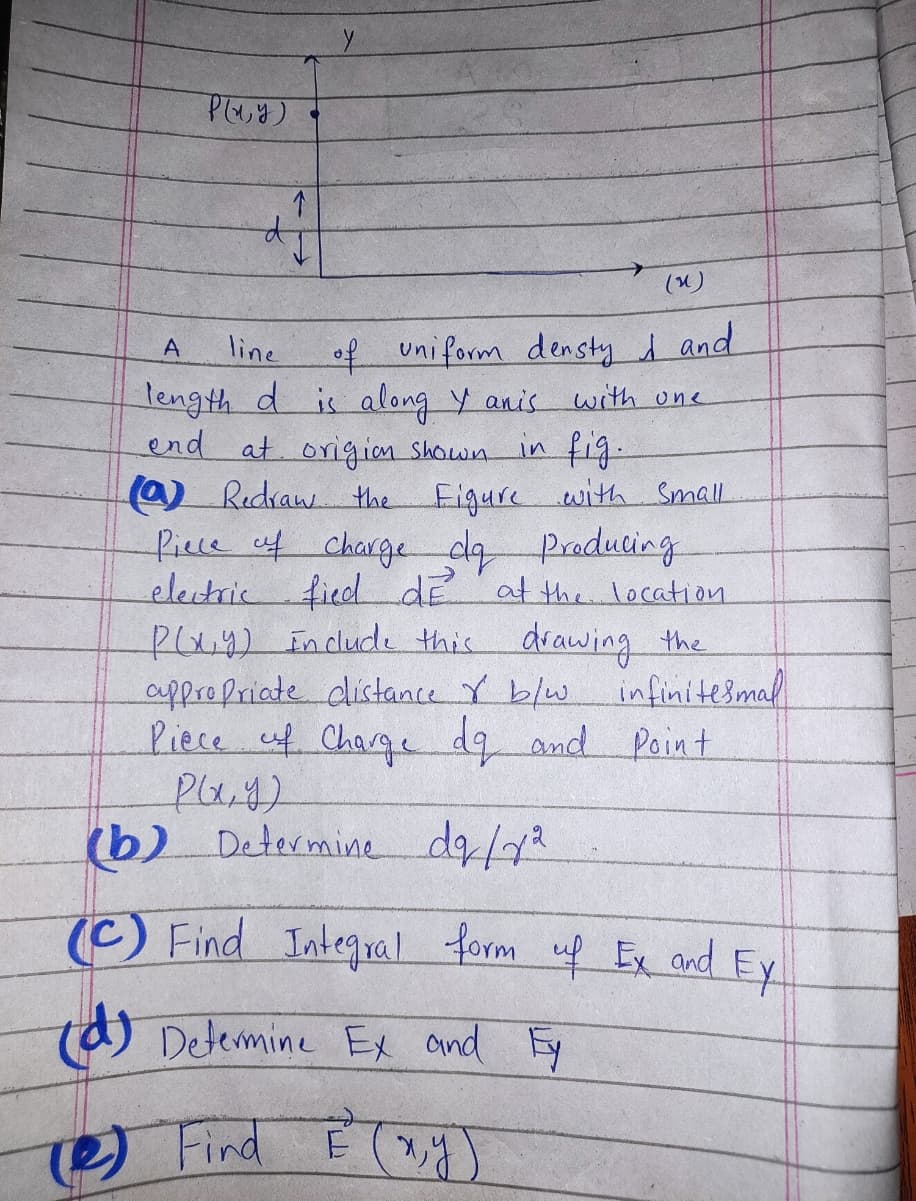 y
P(x,y)
d
(x)
A line of uniform densty λ and
length d is along y anis with one
end at origion shown in fig.
(a) Redraw the Figure with Small
Piece of charge dq Producing
electric fied dE⃗ at the location
P(x,y) Include this drawing the
appropriate distance r b/w infinitesmal
Piece of Charge dq and Point
P(x,y)
(b) Determine dq/r²
(C) Find Integral form of Ex and Ey
(d) Determine Ex and Ey
(e) Find E⃗ (x,y)